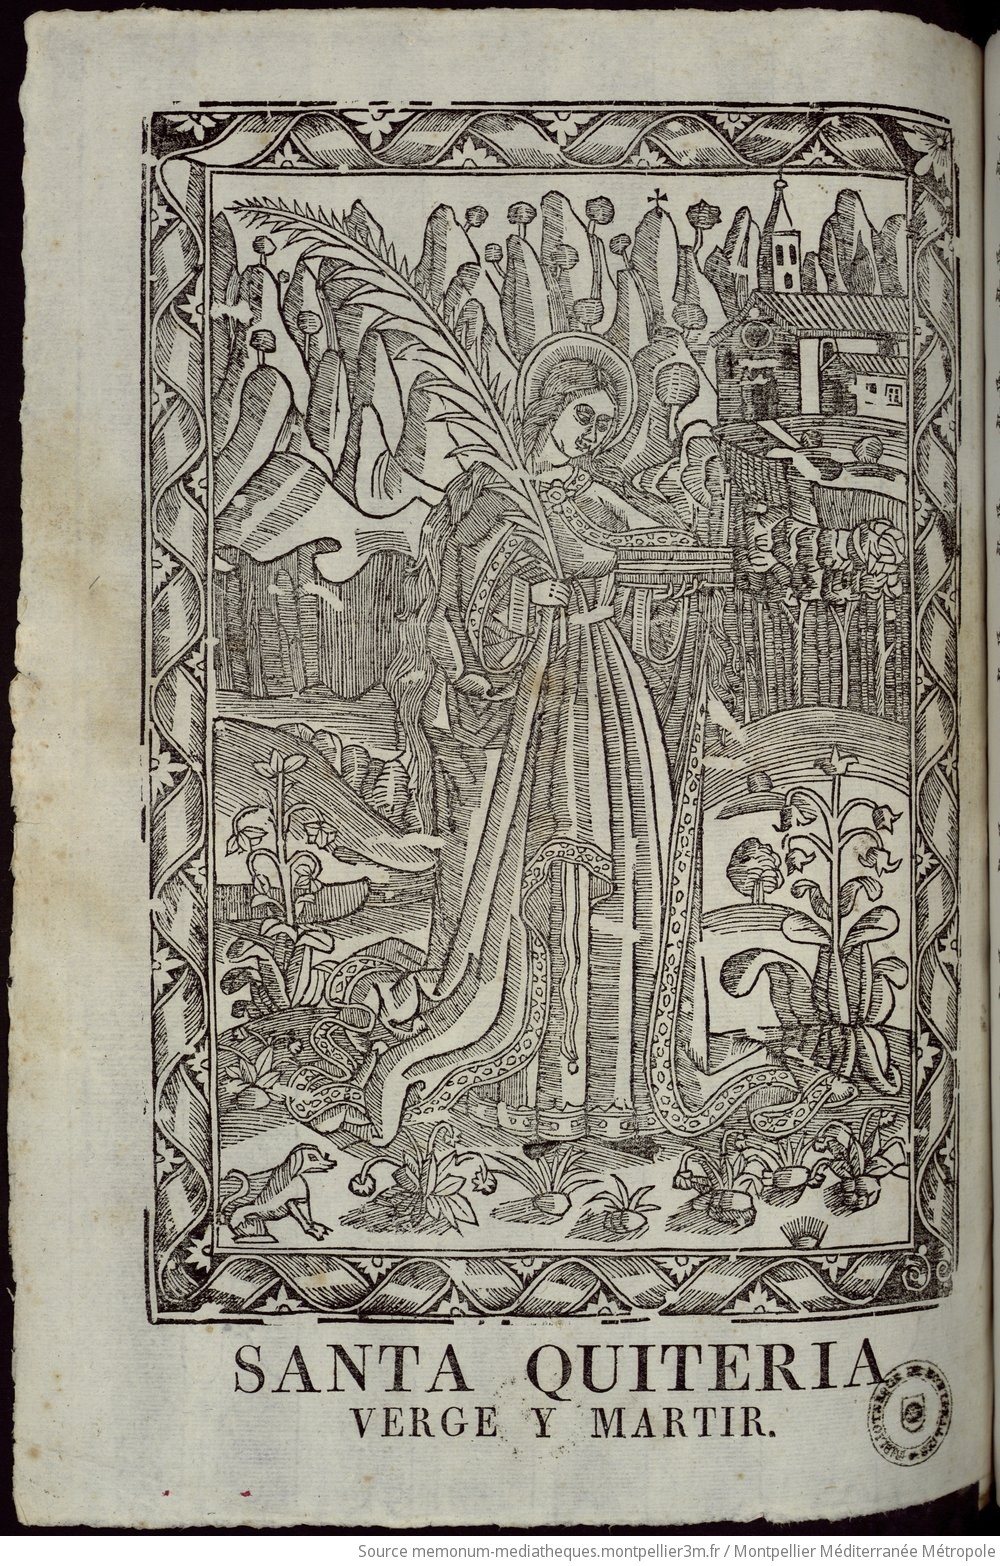 SANTA QUITERIA
VERGE Y MARTIR.
Source memonum-mediatheques.montpellier3m.fr / Montpellier Méditerranée Métropole